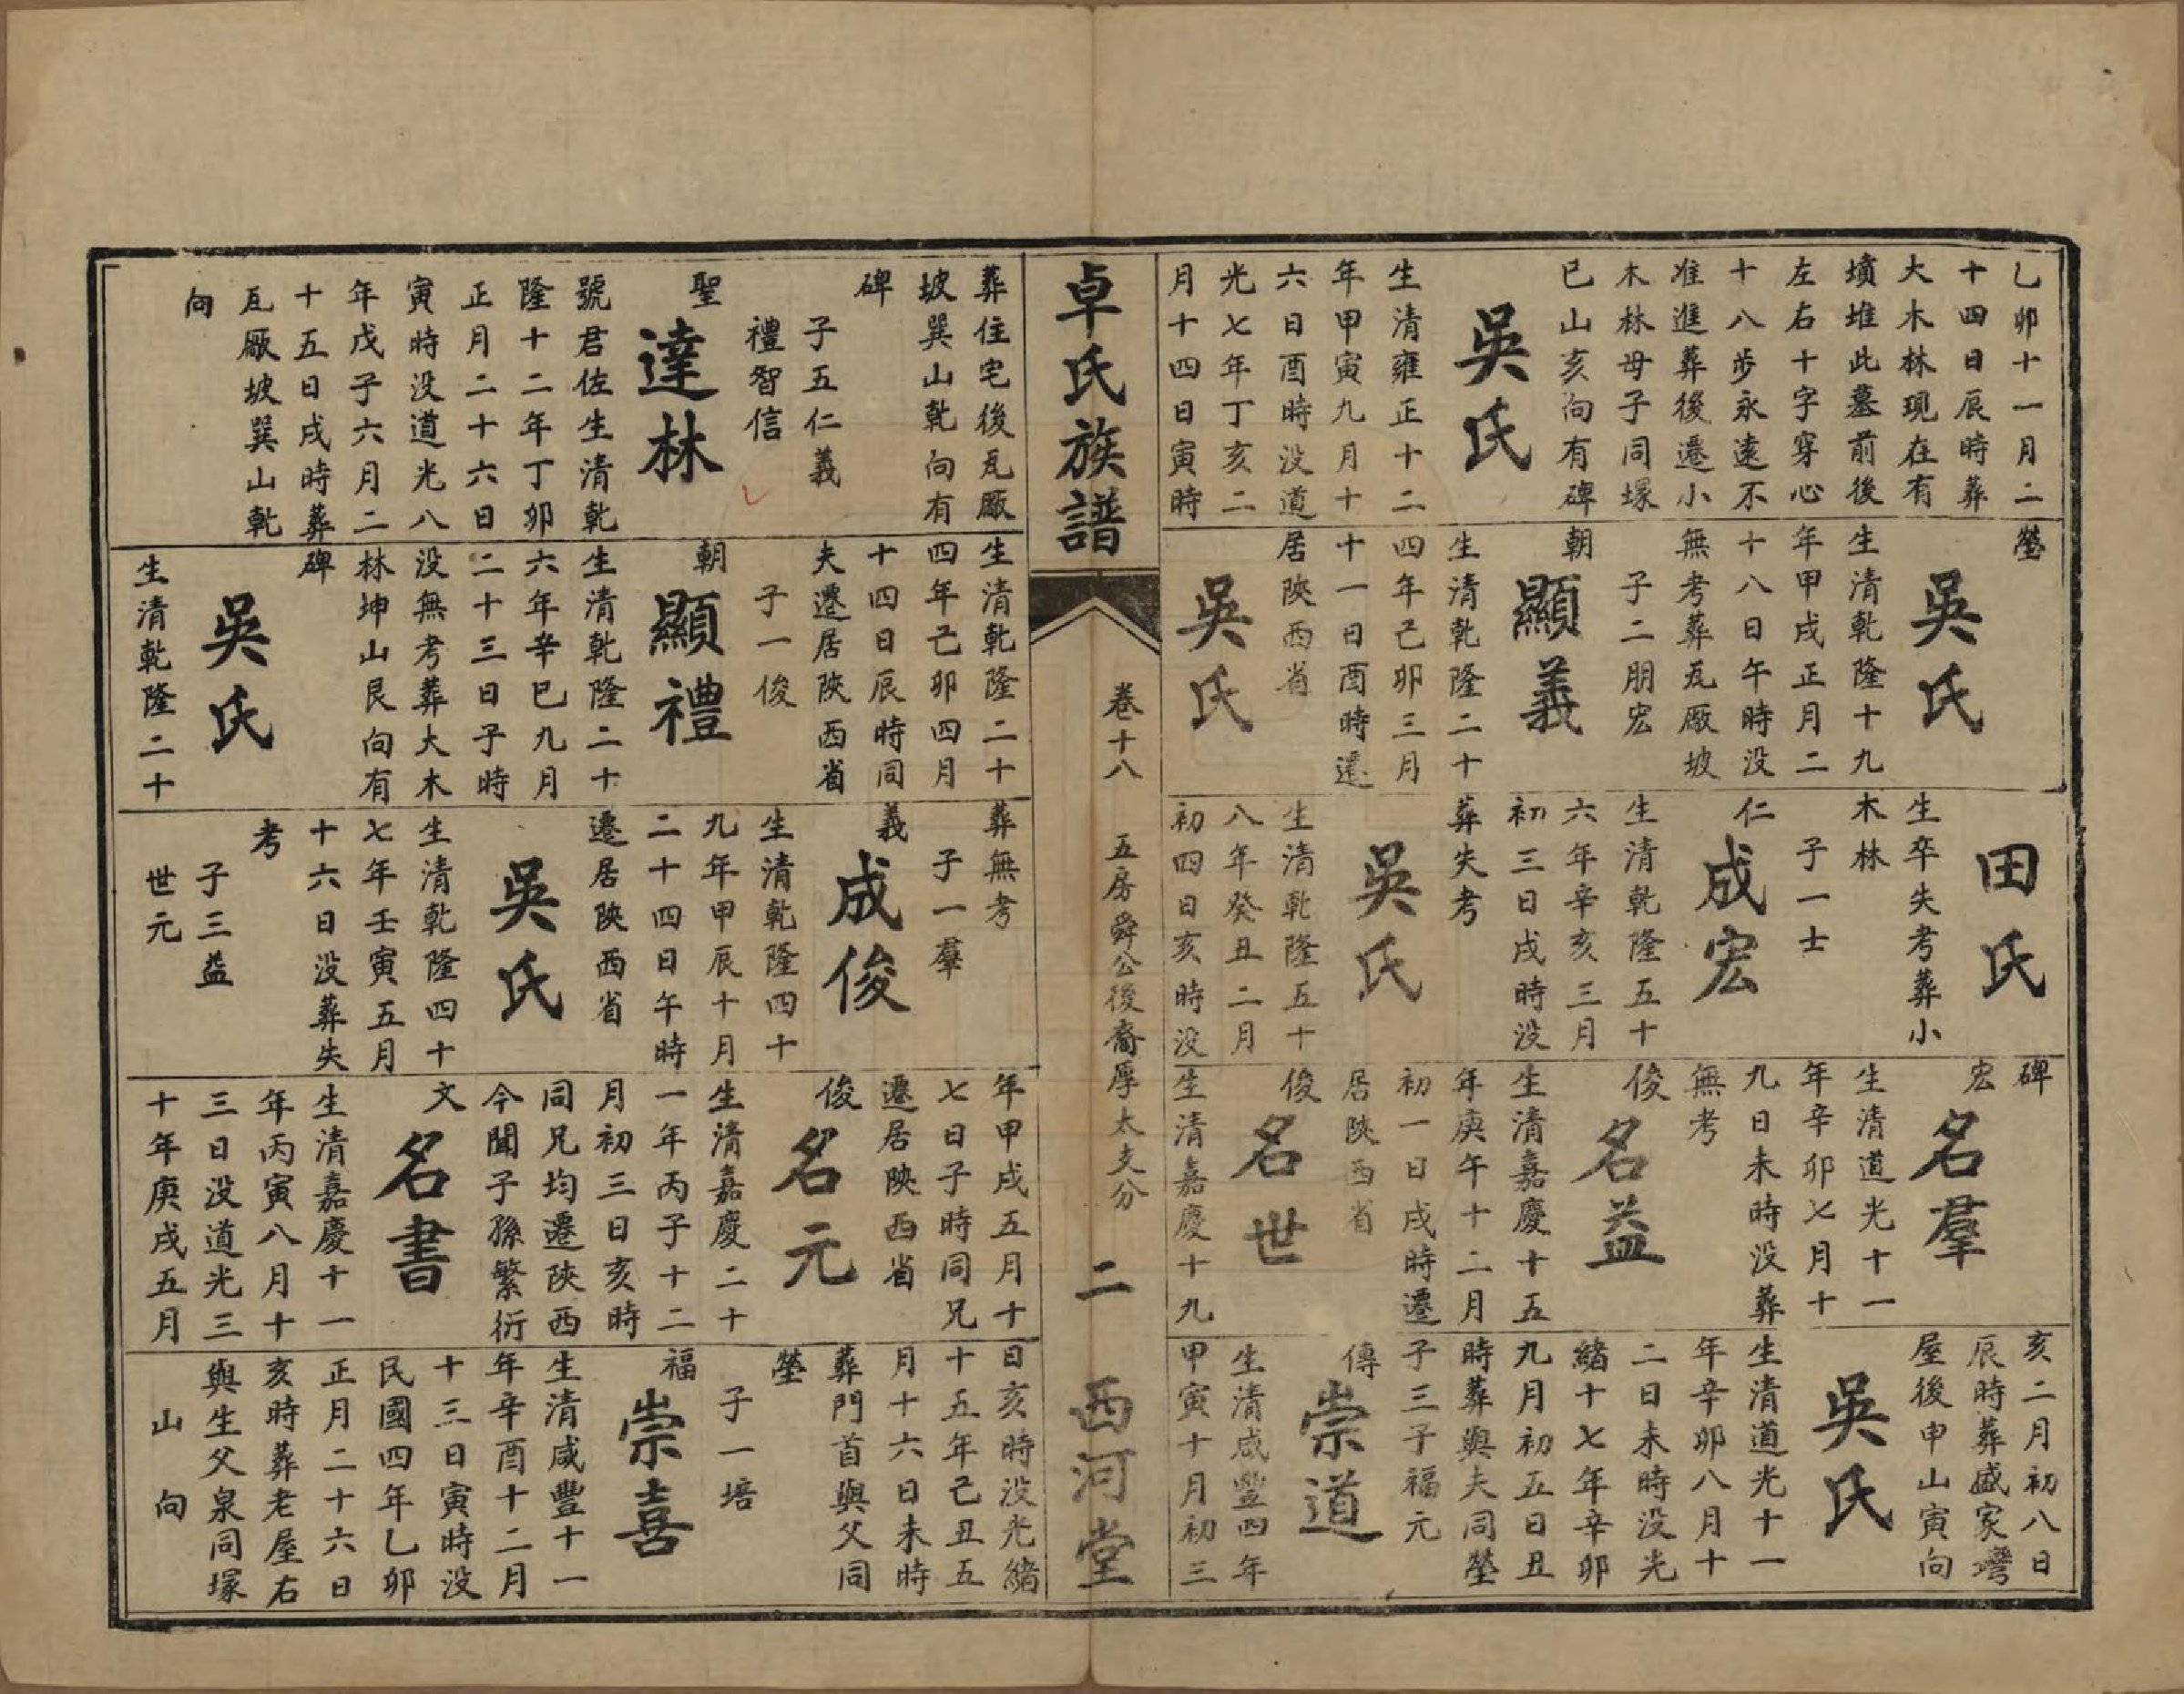 乙卯十一月二
十四日辰時葬
大木林現在有
墳堆此墓前後
左右十字穿心
十八步永遠不
准進葬後遷小
木林母子同塚
巳山亥向有碑
吳氏
生清雍正十二
年甲寅九月十
六日酉時没道
光七年丁亥二
月十四日寅時
塋
吳氏
生清乾隆十九
年甲戌正月二
十八日午時没
無考葬瓦廠坡
子二朋宏
朝
顯義
生清乾隆二十
四年己卯三月
十一日酉時遷
居陝西省
吳氏
田氏
生卒失考葬小
木林
子一士
仁
成宏
生清乾隆五十
六年辛亥三月
初三日戌時没
葬失考
吳氏
生清乾隆五十
八年癸丑二月
初四日亥時没
碑
宏
名羣
生清道光十一
年辛卯七月十
九日未時没葬
無考
俊
名益
生清嘉慶十五
年庚午十二月
初一日戌時遷
居陝西省
俊
名世
生清嘉慶十九
亥二月初八日
辰時葬盛家灣
屋後申山寅向
吳氏
生清道光十一
年辛卯八月十
二日未時没光
緒十七年辛卯
九月初五日丑
時葬與夫同塋
子三子福元
傳
崇道
生清咸豐四年
甲寅十月初三
卓氏族譜
卷十八
五房舜公後裔厚太支分
二
西河堂
葬住宅後瓦廠
坡巽山乾向有
碑
子五仁義
禮智信
聖
達林
號君佐生清乾
隆十二年丁卯
正月二十六日
寅時没道光八
年戊子六月二
十五日戌時葬
瓦廠坡巽山乾
向
生清乾隆二十
四年己卯四月
十四日辰時同
夫遷居陝西省
子一俊
朝
顯禮
生清乾隆二十
六年辛巳九月
二十三日子時
没無考葬大木
林坤山艮向有
碑
吳氏
生清乾隆二十
葬無考
子一羣
義
成俊
生清乾隆四十
九年甲辰十月
二十四日午時
遷居陝西省
吳氏
生清乾隆四十
七年壬寅五月
十六日没葬失
考
子三益
世元
年甲戌五月十
七日子時同兄
遷居陝西省
俊
名元
生清嘉慶二十
一年丙子十二
月初三日亥時
同兄均遷陝西
今聞子孫繁衍
文
名書
生清嘉慶十一
年丙寅八月十
三日没道光三
十年庚戌五月
日亥時没光緒
十五年己丑五
月十六日未時
葬門首與父同
塋
子一培
福
崇喜
生清咸豐十一
年辛酉十二月
十三日寅時没
民國四年乙卯
正月二十六日
亥時葬老屋右
與生父泉同塚
山向